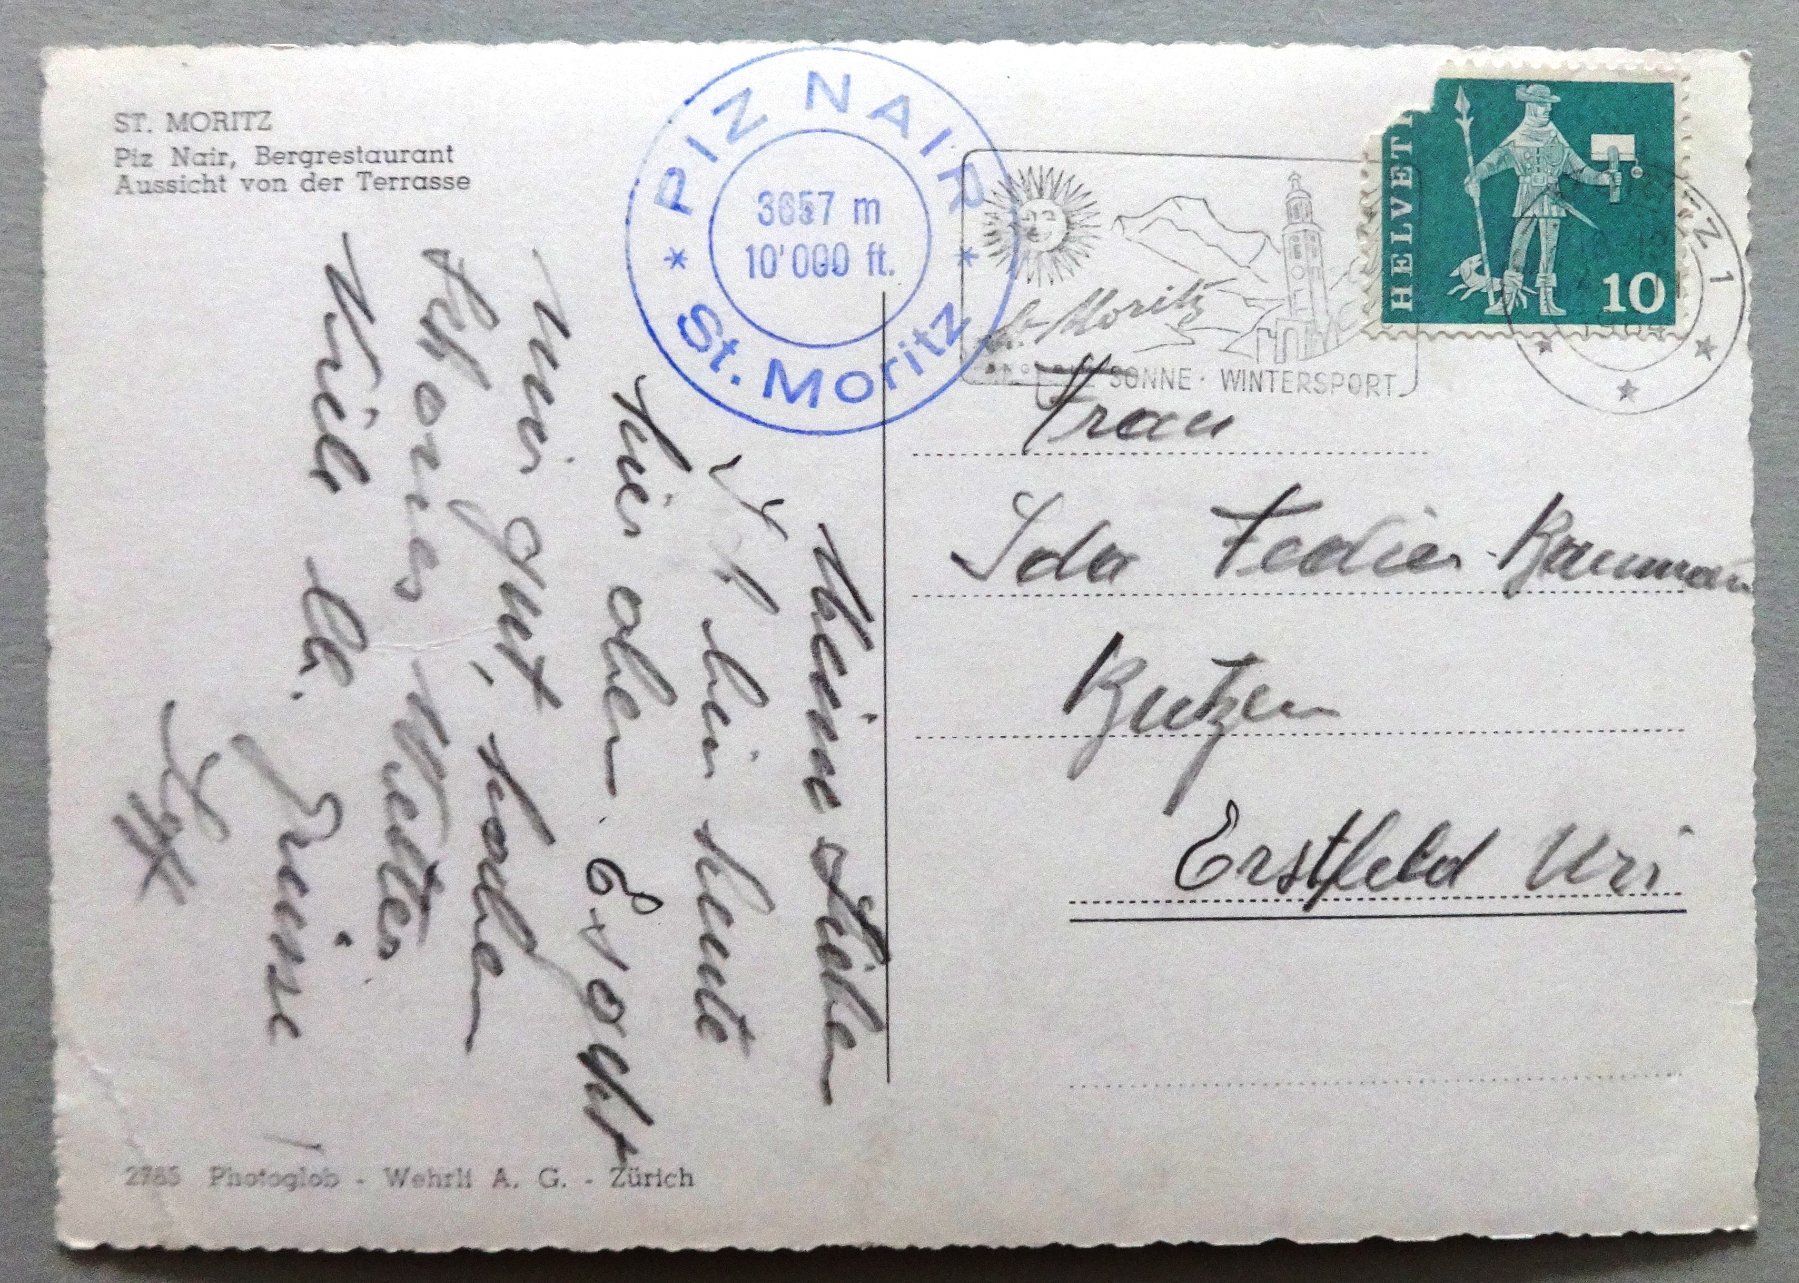 ST. MORITZ
Piz Nair, Bergrestaurant
Aussicht von der Terrasse
PIZ NAIR
3057 m
10'000 ft.
* St. Moritz *
St. Moritz
SONNE · WINTERSPORT
HELVETI
10
Z 1
1964
Meine Lieben
Ich bin heute
hier oben. Es geht
mir gut, habe
schönes Wetter
Viele lb.
Grüsse
Frau
Ida Fedier-Baumann
Butzen
Erstfeld Uri
2785 Photoglob - Wehrli A. G. - Zürich